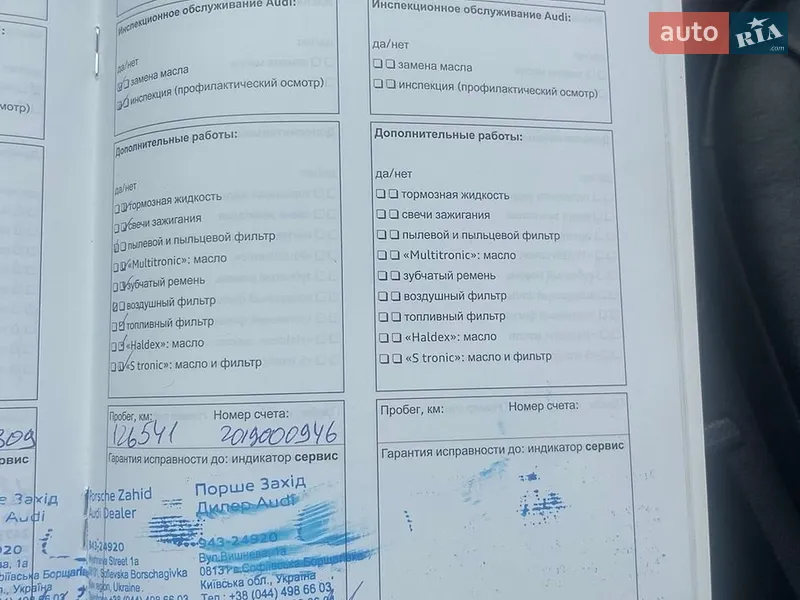 Инспекционное обслуживание Audi:
да/нет
замена масла
инспекция (профилактический осмотр)
Дополнительные работы:
да/нет
тормозная жидкость
свечи зажигания
пылевой и пыльцевой фильтр
«Multitronic»: масло
зубчатый ремень
воздушный фильтр
топливный фильтр
«Haldex»: масло
«S tronic»: масло и фильтр
Пробег, км: Номер счета:
126541 2019000946
Гарантия исправности до: индикатор сервис
Porsche Zahid
Audi Dealer
943-24920
Street 1a
Sofievska Borschagivka
region, Ukraine
+38 (044) 498 66 03
Порше Захід
Дилер Audi
943-24920
Вул.Вишнева 1а
08131 с.Софіївська Борщагівка
Київська обл., Україна
Тел.: +38 (044) 498 66 03
Инспекционное обслуживание Audi:
да/нет
замена масла
инспекция (профилактический осмотр)
Дополнительные работы:
да/нет
тормозная жидкость
свечи зажигания
пылевой и пыльцевой фильтр
«Multitronic»: масло
зубчатый ремень
воздушный фильтр
топливный фильтр
«Haldex»: масло
«S tronic»: масло и фильтр
Пробег, км: Номер счета:
Гарантия исправности до: индикатор сервис
мотр)
309
рвис
е Захід
Audi
4920
ва, 1а
фіївська Борщагі
., Україна
44) 498 66 03
auto RIA .com